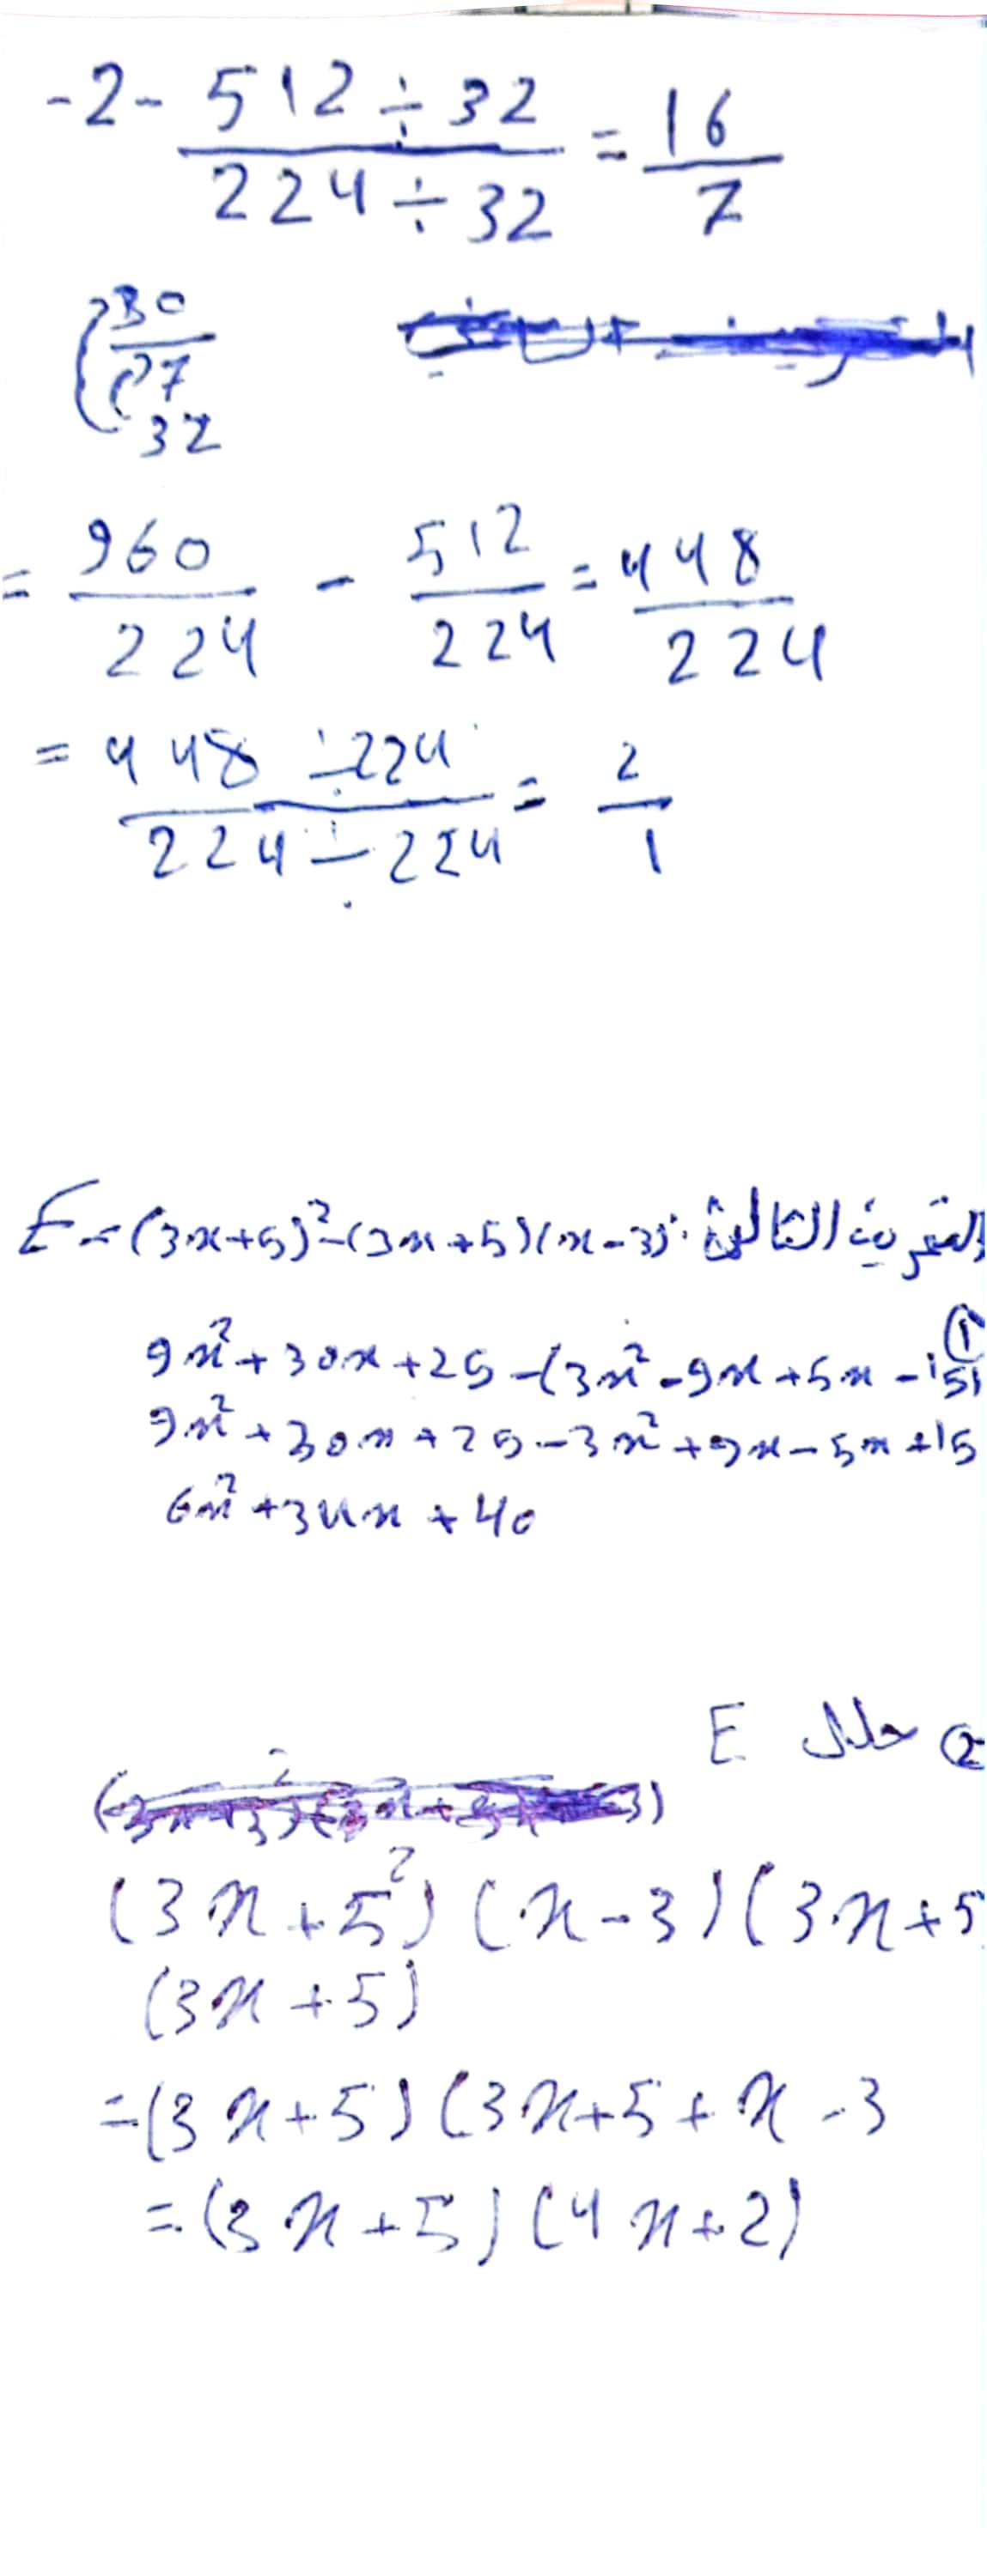 -2- 512 ÷ 32 / 224 ÷ 32 = 16 / 7
30 / 7
32
= 960 / 224 - 512 / 224 = 448 / 224
= 448 ÷ 224 / 224 ÷ 224 = 2 / 1
التمرين الثالث: E = (3x+5)²-(3x+5)(x-3)
①
9x²+30x+25-(3x²-9x+5x-15)
9x²+30x+25-3x²+9x-5x+15
6x²+34x+40
② حلل E
(3x+5²)(x-3)(3x+5
(3x+5)
=(3x+5)(3x+5+x-3
=(3x+5)(4x+2)